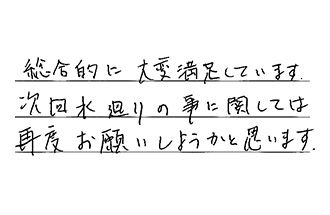 総合的に大変満足しています.
次回水廻りの事に関しては
再度お願いしようかと思います.